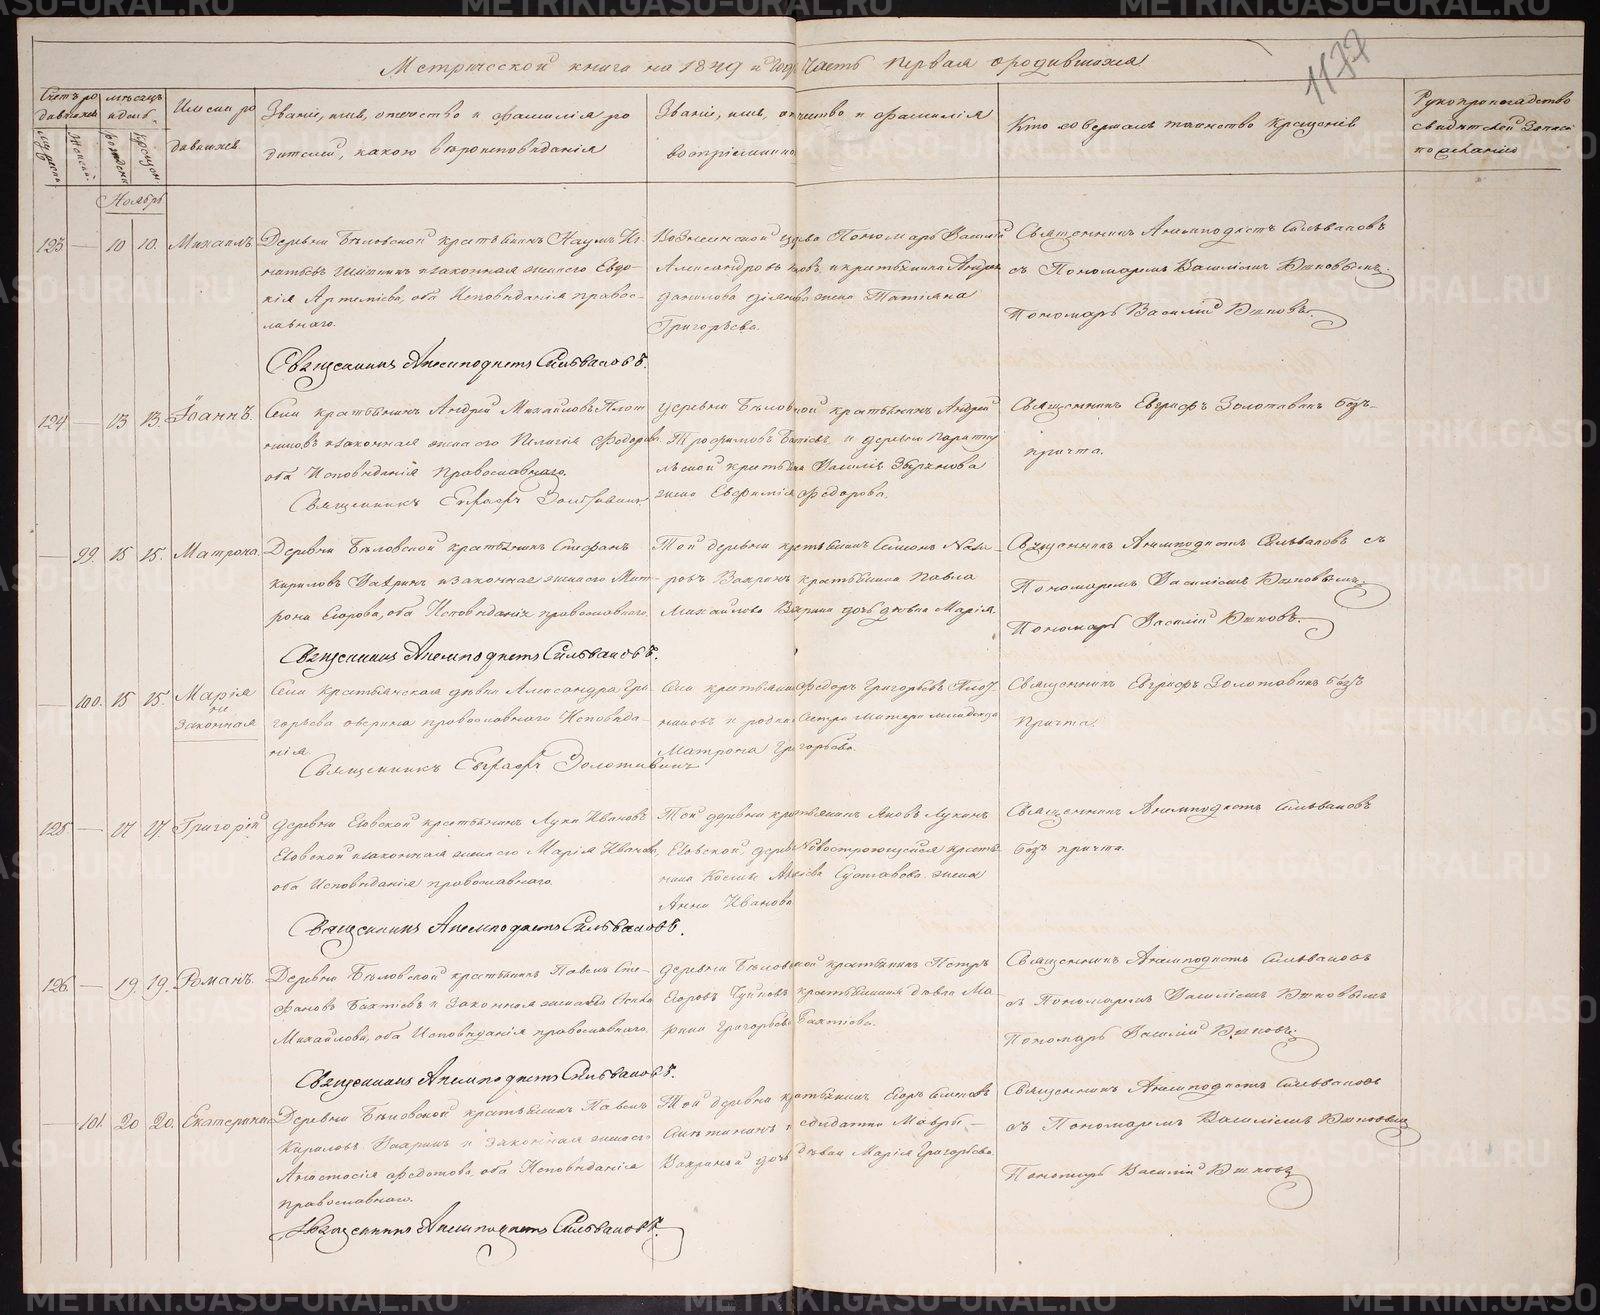 Метрической книги на 1849 й Годъ Часть первая о родившихся
1177
Счетъ ро
дившихся
Мужеска
Женска
мѣсяцъ
и день
рожденія
крещен.
Имена ро
дившихся
Званіе, имя, отчество и фамилія ро
дителей, какого вѣроисповѣданія
Званіе, имя, отчество и фамилія
воспріемников
Кто совершалъ таинство крещенія
Рукоприкладство
свидѣтелей записи
по желанію
Ноябрь
123 — 10 10. Михаилъ
Деревни Бѣловской крестьянинъ Наумъ Иг
натьевъ и законная жена его Евдо-
кія Артеміева, оба исповѣданія правос-
лавнаго.
Священникъ Анемподистъ Сильвановъ.
Вознесенской церкви Пономарь Василій
Александровъ и крестьянина Андрея
Данилова жена Татіана
Григорьева.
Священникъ Анемподистъ Сильвановъ
съ Пономаремъ Василіемъ
Пономарь Василій
124 — 13 13. Іоаннъ.
Села крестьянинъ Андрей Михайловъ Плот
никовъ и законная жена его Пелагія Федорова
оба исповѣданія православнаго.
Священникъ Евграфъ Золотавинъ
деревни Бѣловской крестьянинъ Андрей
Трофимовъ и деревни
крестьянина Василія жена
Евфимія Федорова.
Священникъ Евграфъ Золотавинъ безъ
причта.
— 99. 15 15. Матрона.
Деревни Бѣловской крестьянинъ Стефанъ
Кириловъ Вахринъ и законная жена его Мат-
рона Егорова, оба исповѣданія православнаго.
Священникъ Анемподистъ Сильвановъ.
Той деревни крестьянинъ Симонъ
Вахринъ крестьянина Павла
Михайлова Вахрина дочь дѣвка Марія.
Священникъ Анемподистъ Сильвановъ съ
Пономаремъ Василіемъ
Пономарь Василій
— 100. 15 15. Марія
не
законная
Села крестьянская дѣвка Александра Гри
горьева православнаго исповѣда-
нія.
Священникъ Евграфъ Золотавинъ
Села крестьянинъ Федоръ Григорьевъ Плот
никовъ и родная сестра матери младенца
Матрона Григорьева.
Священникъ Евграфъ Золотавинъ безъ
причта.
125 — 17 17. Григорій
деревни Еговской крестьянинъ Лука Ивановъ
Еговской и законная жена его Марія Иванова
оба исповѣданія православнаго.
Священникъ Анемподистъ Сильвановъ.
Той деревни крестьянинъ Яковъ Лукинъ
Еговской, дерев Новостроющейся крестья
нина Космы жена
Анна Иванова
Священникъ Анемподистъ Сильвановъ
безъ причта.
126. — 19. 19. Романъ.
Деревни Бѣловской крестьянинъ Павелъ Сте-
фановъ Бахтіевъ и законная жена его
Михайлова, оба исповѣданія православнаго.
Священникъ Анемподистъ Сильвановъ.
деревни Бѣловской крестьянинъ Петръ
Егоровъ крестьянская дѣвка Ма-
рина Григорьева Бахтіева.
Священникъ Анемподистъ Сильвановъ
съ Пономаремъ Василіемъ
Пономарь Василій
— 101. 20 20. Екатерина
Деревни Бѣловской крестьянинъ Павелъ
Кириловъ Вахринъ и законная жена его
Анастасія Федотова, оба исповѣданія
православнаго.
Священникъ Анемподистъ Сильвановъ.
Той деревни крестьянинъ Егоръ Симоновъ
и солдатки Мавры
Вахриной дочь дѣвка Марія Григорьева
Священникъ Анемподистъ Сильвановъ
съ Пономаремъ Василіемъ
Пономарь Василій
METRIKI.GASO-URAL.RU